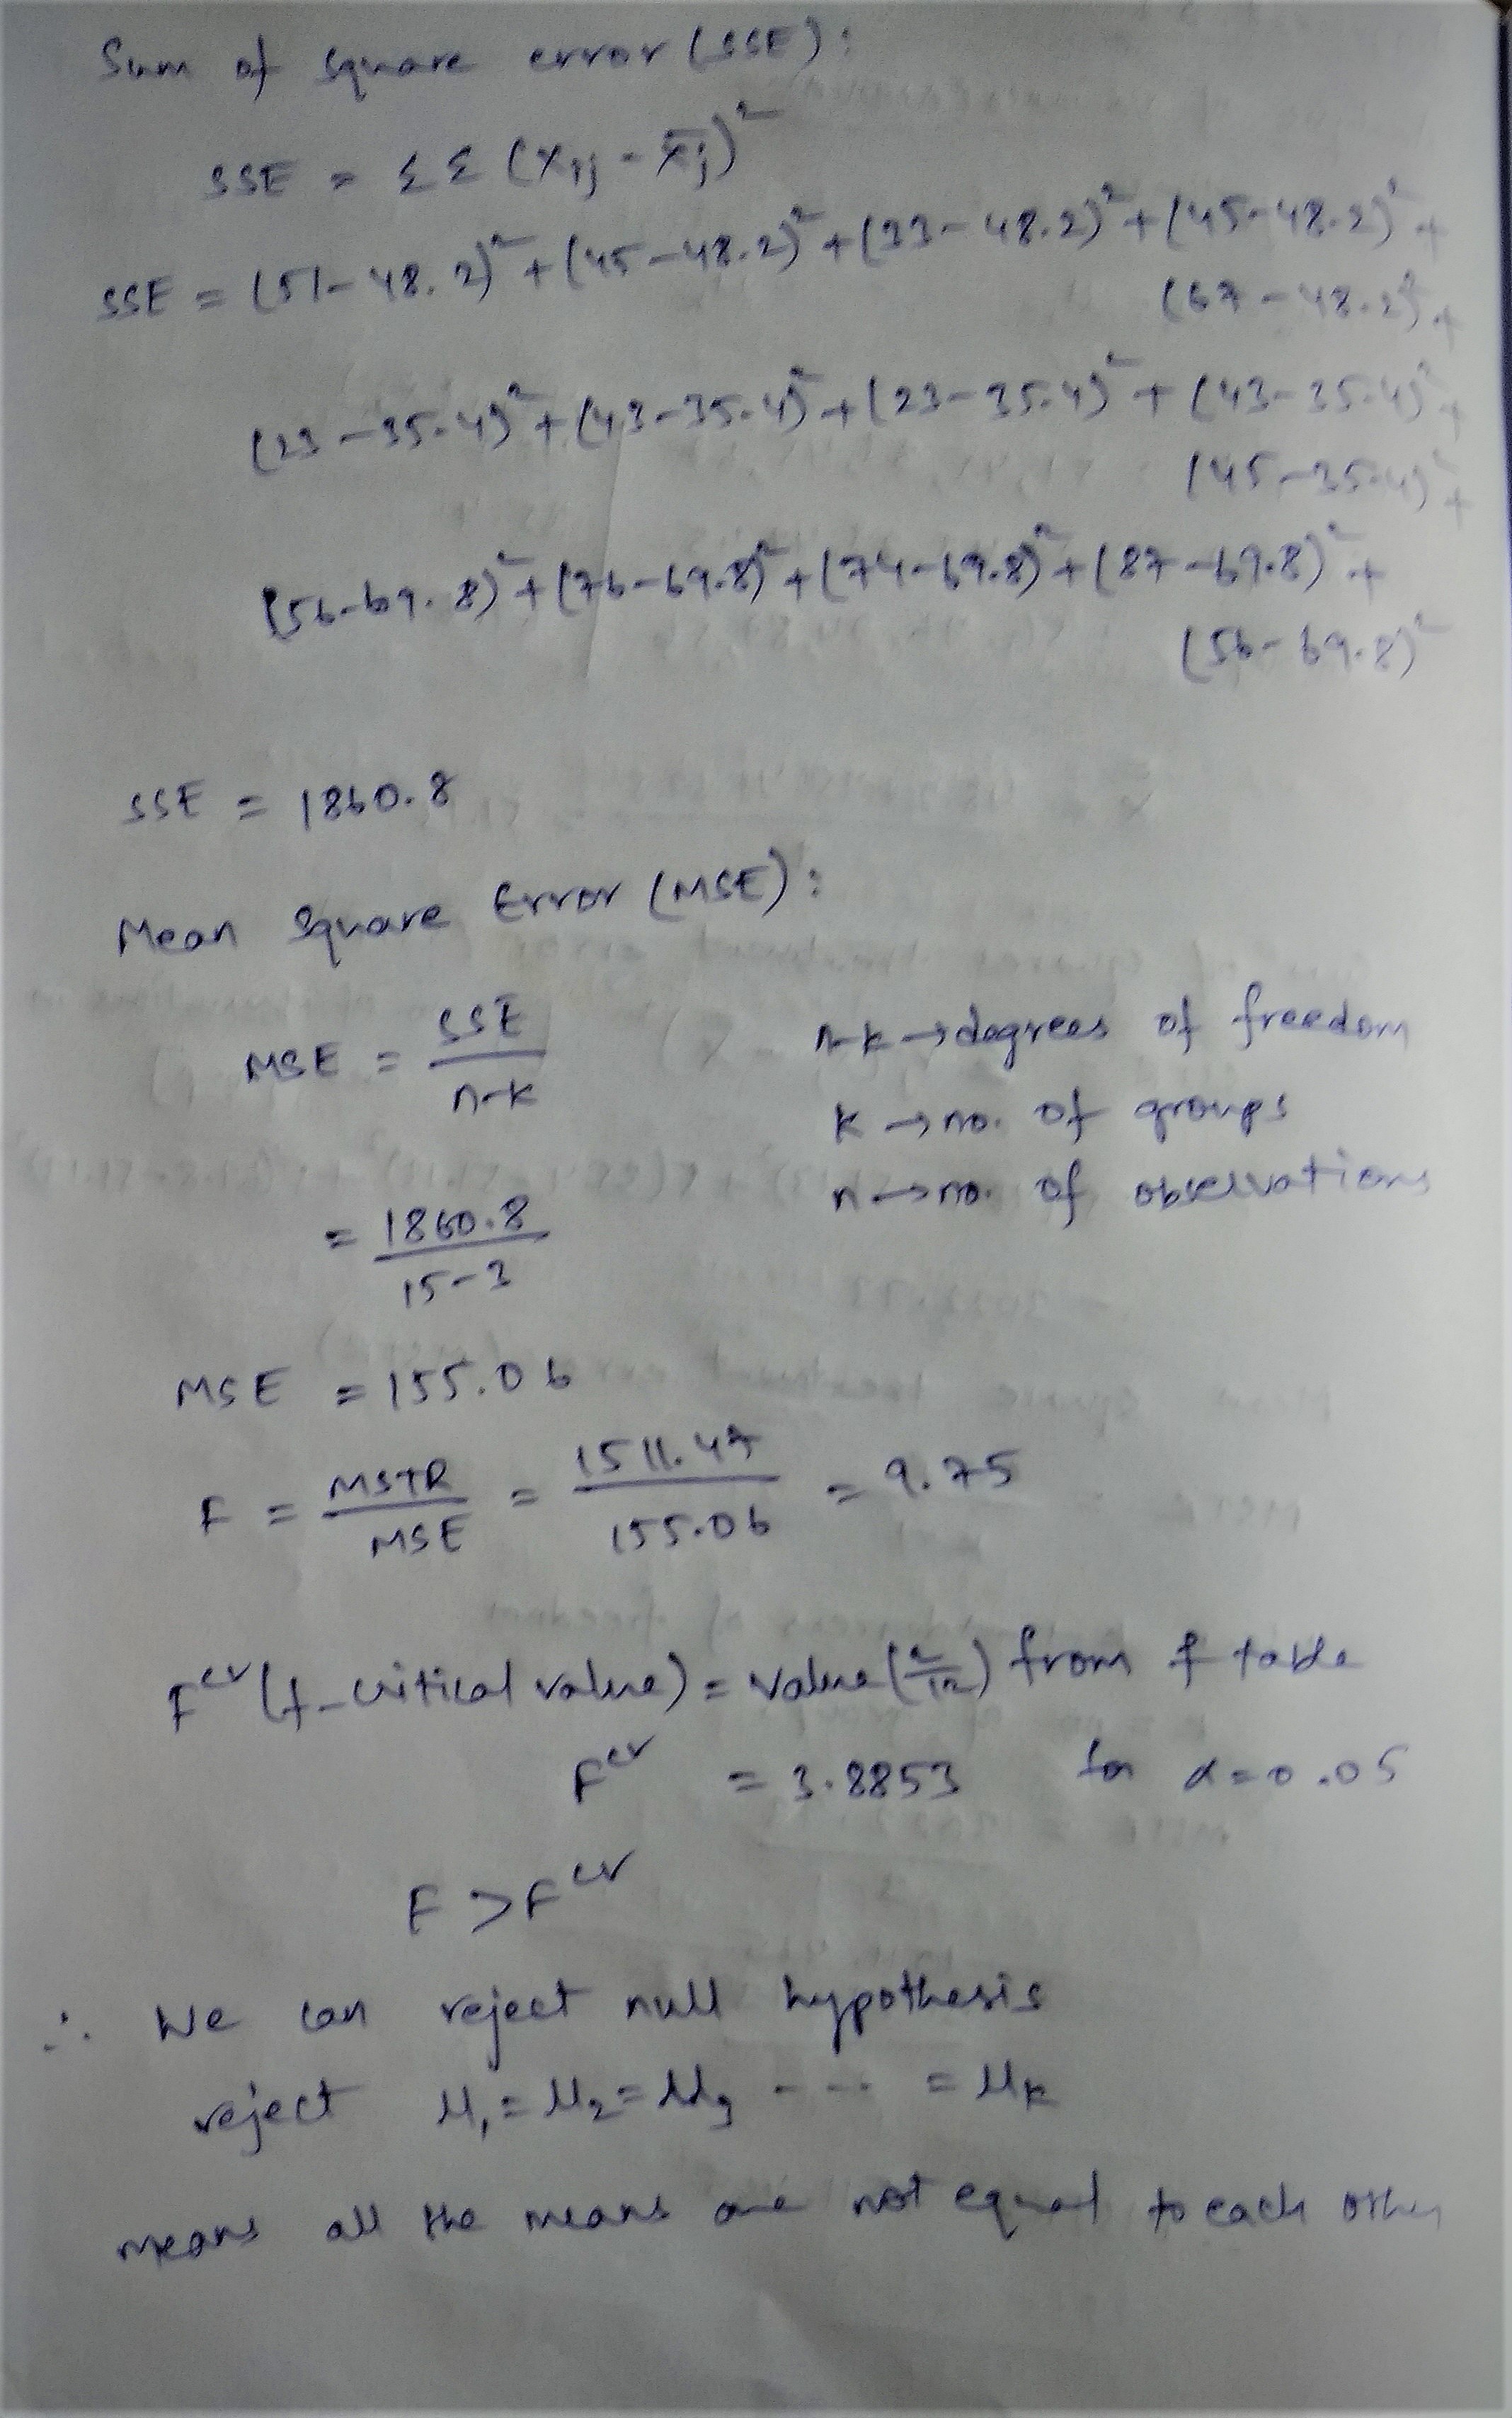 Sum of square error (SSE):
SSE = ΣΣ (Xij - x̄j)²
SSE = (51-48.2)² + (45-48.2)² + (33-48.2)² + (45-48.2)² +
(67-48.2)² +
(23-35.4)² + (43-35.4)² + (23-35.4)² + (43-35.4)² +
(45-35.4)² +
(56-69.8)² + (76-69.8)² + (74-69.8)² + (87-69.8)² +
(56-69.8)²
SSE = 1860.8
Mean Square Error (MSE):
MSE = SSE / n-k
n-k → degrees of freedom
k → no. of groups
n → no. of observations
= 1860.8 / 15-3
MSE = 155.06
F = MSTR / MSE = 1511.47 / 155.06 = 9.75
F^cr (f-critical value) = value (2/12) from f table
F^cr = 3.8853 for α=0.05
F > F^cr
∴ We can reject null hypothesis
reject μ₁ = μ₂ = μ₃ ---- = μk
means all the means are not equal to each other